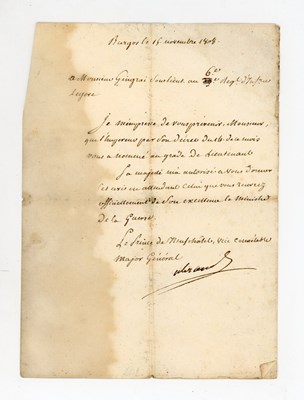 Burgos le 15 novembre 1808
a Monsieur Gengrai Souslieut. au 6er Regt. d'Infrie
legere
Je m'empresse de vous prevenir, Monsieur,
que l'Empereur par son decret du 14 de ce mois
vous a nommé au grade de Lieutenant
Sa majesté m'a autorisé a vous donner
cet avis en attendant celui que vous recevrez
officiellement de son excellence le Ministre
de la Guerre.
Le Prince de Neufchatel, vice connétable
Major Général